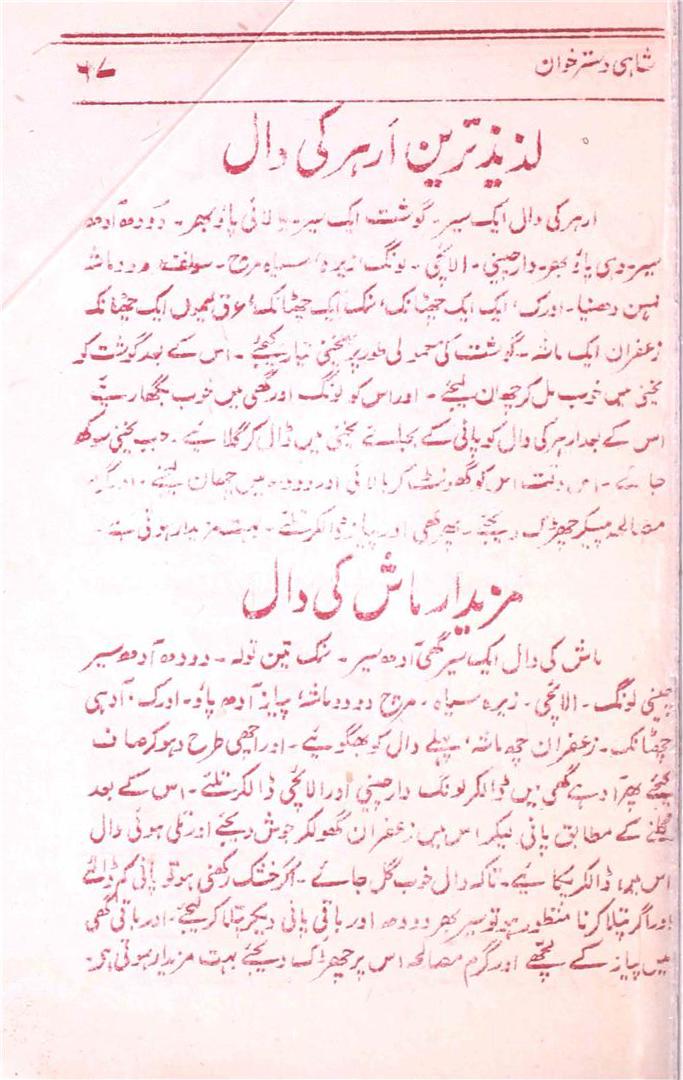 شاہی دسترخوان
۶۷
لذیذ ترین اَرہر کی دال
ارہر کی دال ایک سیر۔ گوشت ایک سیر۔ بالائی پاؤ بھر۔ دودھ آدھ
سیر۔ دہی پاؤ بھر۔ دارچینی۔ الائچی۔ لونگ، زیرہ، سیاہ مرچ۔ دو دو ماشہ
لہسن دھنیا۔ ادرک، ایک ایک چھٹانک، نمک ایک چھٹانک، عرق لیموں ایک چھٹانک
زعفران ایک ماشہ۔ گوشت کی معمولی طور پر یخنی تیار کیجئے۔ اس کے بعد گوشت کو
یخنی میں خوب مل کر چھان لیجئے۔ اور اس کو لونگ اور گھی میں خوب بگھاریئے
اس کے بعد ارہر کی دال کو پانی کے بجائے یخنی میں ڈال کر گلائیے۔ جب یخنی سوکھ
جائے۔ اس وقت اس کو گھونٹ کر بالائی اور دودھ میں چھان لیجئے۔ اور گرم
مصالحہ پیسکر چھڑک دیجئے۔ پھر گھی اور پیاز ڈالکر تلئے۔ بہت مزیدار ہوتی ہے۔
مزیدار ماش کی دال
ماش کی دال ایک سیر گھی آدھ سیر۔ نمک تین تولہ۔ دودھ آدھ سیر
چینی لونگ۔ الائچی۔ زیرہ سیاہ۔ مرچ دو دو ماشہ، پیاز آدھ پاؤ۔ ادرک۔ آدہی
چھٹانک۔ زعفران چھ ماشہ، پہلے دال کو بھگوئیے۔ اور اچھی طرح دہوکر صاف
کیجئے پھر آدہے گھی میں ڈالکر لونگ دارچینی اور الائچی ڈالکر تلئے۔ اس کے بعد
گلنے کے مطابق پانی لیکر اس میں زعفران گھولکر جوش دیجئے اور تلی ہوئی دال
اس میں ڈالکر پکائیے۔ تاکہ دال خوب گل جائے۔ اگر خشک رکھنی ہو تو پانی کم ڈالئے
اور اگر پتلا کرنا منظور ہو تو سیر بھر دودھ اور باقی پانی دیکر پتلا کر لیجئے۔ اور باقی گھی
میں پیاز کے لچھے اور گرم مصالحہ اس پر چھڑک دیجئے بہت مزیدار ہوتی ہے۔